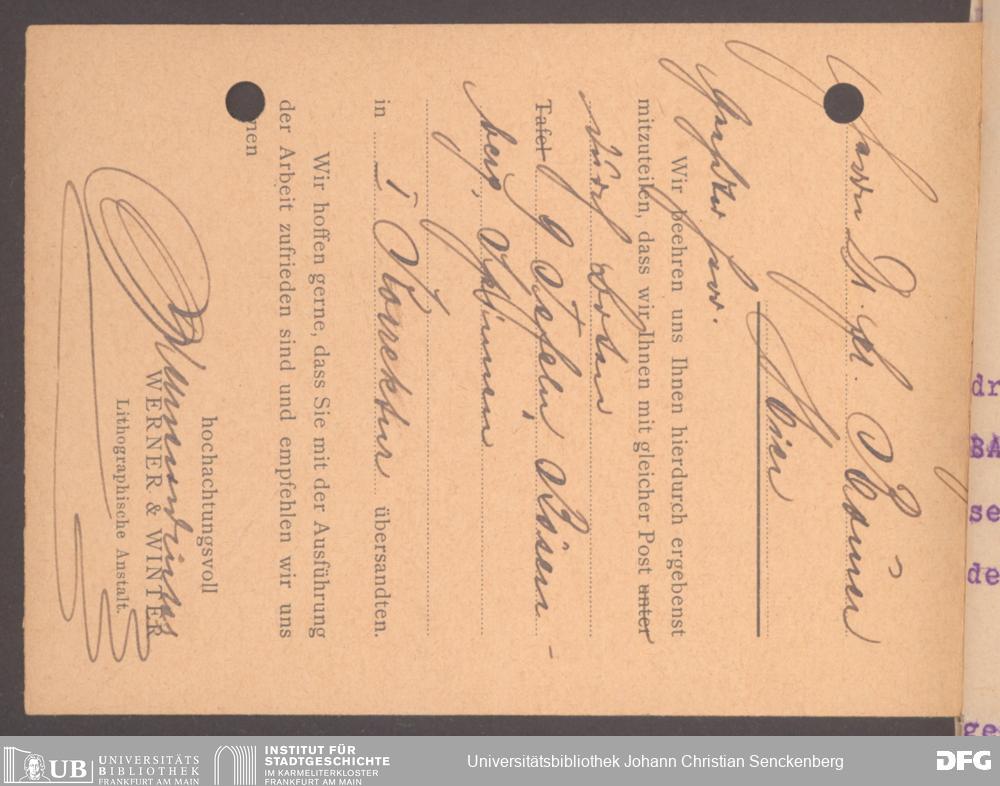 Herrn Dr. M. Rauner
Hier
Wir beehren uns Ihnen hierdurch ergebenst
mitzuteilen, dass wir Ihnen mit gleicher Post unter
durch Boten
Tafel 9 Tafeln Rösen-
berg,
in I Korrektur übersandten.
Wir hoffen gerne, dass Sie mit der Ausführung
der Arbeit zufrieden sind und empfehlen wir uns
nen
hochachtungsvoll
WERNER & WINTER
Lithographische Anstalt.
dr
BA
se
de
ge
UB UNIVERSITÄTS
BIBLIOTHEK
FRANKFURT AM MAIN
INSTITUT FÜR
STADTGESCHICHTE
IM KARMELITERKLOSTER
FRANKFURT AM MAIN
Universitätsbibliothek Johann Christian Senckenberg
DFG